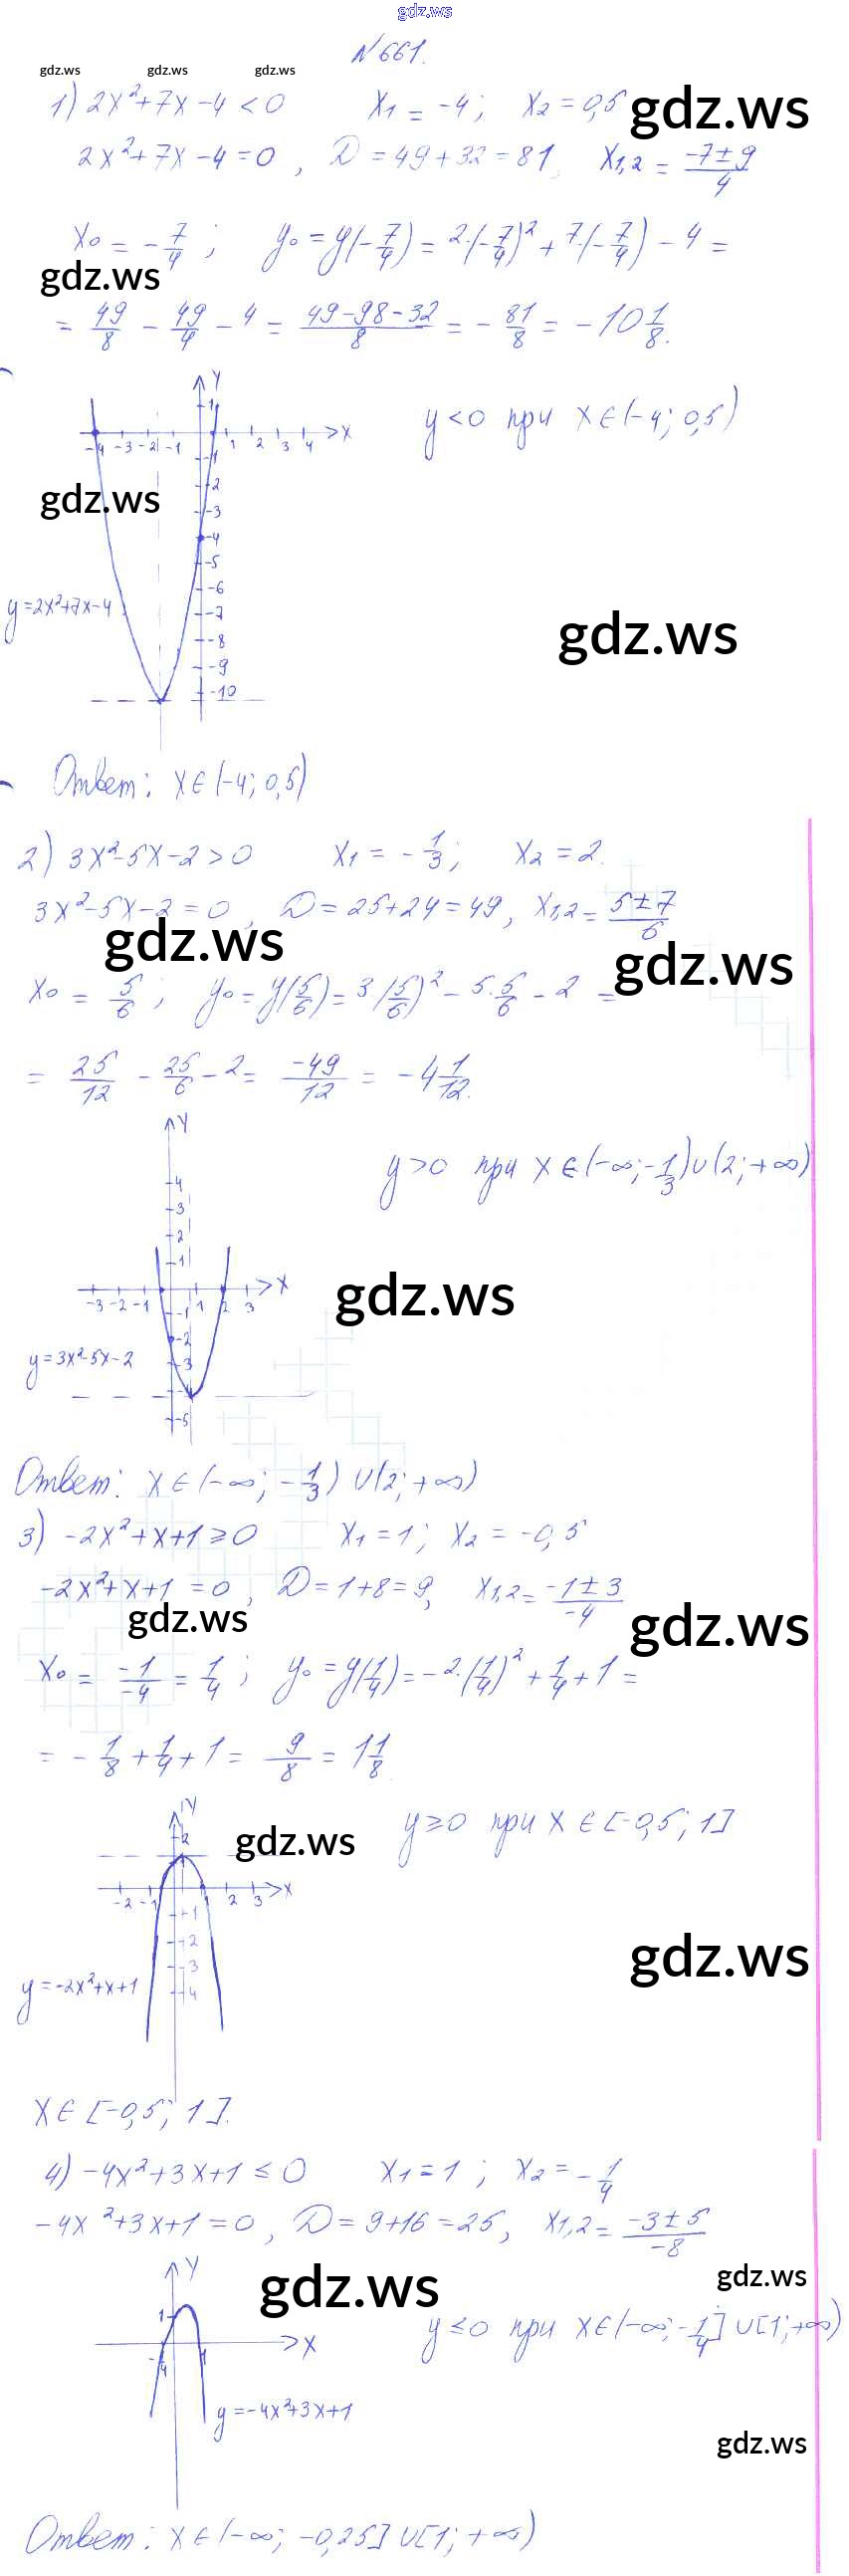 gdz.ws
N661.
gdz.ws gdz.ws gdz.ws
1) 2x²+7x-4<0 x₁ = -4; x₂ = 0,5
gdz.ws
2x²+7x-4=0, D=49+32=81, x₁,₂ = (-7±9)/4
x₀ = -7/4; y₀=y(-7/4)=2·(-7/4)²+7·(-7/4)-4=
gdz.ws
= 49/8 - 49/4 - 4 = (49-98-32)/8 = -81/8 = -10 1/8.
Y
1
y<0 при x∈(-4; 0,5)
-4 -3 -2 -1 1 2 3 4 X
-1
-2
gdz.ws
-3
-4
-5
-6
y=2x²+7x-4
-7
gdz.ws
-8
-9
-10
Ответ: x∈(-4; 0,5)
2) 3x²-5x-2>0 x₁ = -1/3; x₂ = 2.
3x²-5x-2=0, D=25+24=49, x₁,₂= (5±7)/6
gdz.ws
gdz.ws
x₀ = 5/6; y₀=y(5/6)=3(5/6)²-5·5/6-2=
= 25/12 - 25/6 - 2 = -49/12 = -4 1/12.
Y
y>0 при x∈(-∞; -1/3)∪(2; +∞)
4
3
2
1
X
-3 -2 -1 1 2 3
gdz.ws
-1
-2
y=3x²-5x-2
-3
-5
Ответ: x∈(-∞; -1/3)∪(2; +∞)
3) -2x²+x+1≥0 x₁=1; x₂ = -0,5
-2x²+x+1=0, D=1+8=9, x₁,₂= (-1±3)/-4
gdz.ws
gdz.ws
x₀ = -1/-4 = 1/4; y₀=y(1/4)=-2·(1/4)²+1/4+1=
= -1/8+1/4+1= 9/8 = 1 1/8.
Y
y≥0 при x∈[-0,5; 1]
2
gdz.ws
-2 -1 1 2 3 X
1
2
gdz.ws
3
y=-2x²+x+1
4
x∈[-0,5; 1].
4) -4x²+3x+1≤0 x₁=1; x₂=-1/4
-4x²+3x+1=0, D=9+16=25, x₁,₂= (-3±5)/-8
Y
gdz.ws
gdz.ws
1
y≤0 при x∈(-∞; -1/4]∪[1; +∞)
X
-1/4 1
y=-4x²+3x+1
gdz.ws
Ответ: x∈(-∞; -0,25]∪[1; +∞)